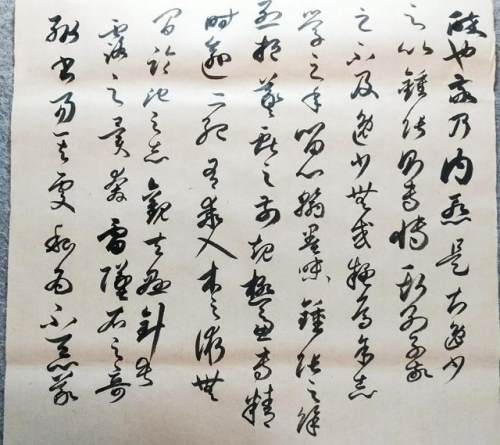 醉也敬乃內慙是知逸少
之比鍾張則專博斯別子敬
之不及逸少無或疑焉余志
學之年留心翰墨味鍾張之餘
烈挹羲獻之前規極慮專精
時逾二紀有乖入木之術無
間臨池之志觀夫懸針垂
露之異奔雷墜石之奇
不